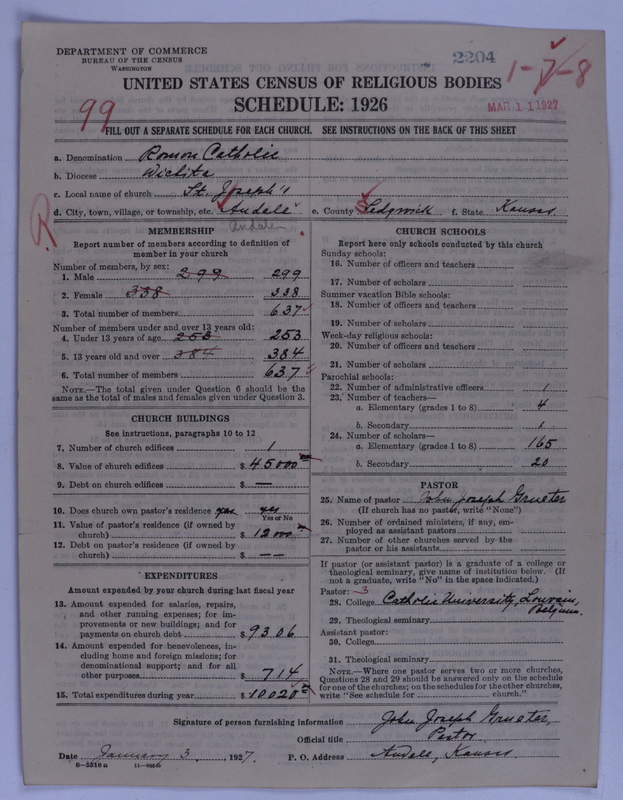 DEPARTMENT OF COMMERCE
BUREAU OF THE CENSUS
WASHINGTON
2204
1-7-8
MAR 11 1927
UNITED STATES CENSUS OF RELIGIOUS BODIES
SCHEDULE: 1926
99
FILL OUT A SEPARATE SCHEDULE FOR EACH CHURCH. SEE INSTRUCTIONS ON THE BACK OF THIS SHEET
a. Denomination Roman Catholic
b. Diocese Wichita
c. Local name of church St. Joseph's
d. City, town, village, or township, etc. Andale e. County Sedgwick f. State Kansas
Andale
R
MEMBERSHIP
Report number of members according to definition of member in your church
Number of members, by sex:
1. Male 299 299
2. Female 338 338
3. Total number of members 637
Number of members under and over 13 years old:
4. Under 13 years of age 253 253
5. 13 years old and over 384 384
6. Total number of members 637
NOTE.—The total given under Question 6 should be the same as the total of males and females given under Question 3.
CHURCH BUILDINGS
See instructions, paragraphs 10 to 12
7. Number of church edifices 1
8. Value of church edifices $ 45000
9. Debt on church edifices $ —
10. Does church own pastor's residence yes yes
Yes or No
11. Value of pastor's residence (if owned by church) $ 12000
12. Debt on pastor's residence (if owned by church) $ — —
EXPENDITURES
Amount expended by your church during last fiscal year
13. Amount expended for salaries, repairs, and other running expenses; for improvements or new buildings; and for payments on church debt $ 9306
14. Amount expended for benevolences, including home and foreign missions; for denominational support; and for all other purposes $ 714
15. Total expenditures during year $ 10020
CHURCH SCHOOLS
Report here only schools conducted by this church
Sunday schools:
16. Number of officers and teachers
17. Number of scholars
Summer vacation Bible schools:
18. Number of officers and teachers
19. Number of scholars
Week-day religious schools:
20. Number of officers and teachers
21. Number of scholars
Parochial schools:
22. Number of administrative officers 1
23. Number of teachers—
a. Elementary (grades 1 to 8) 4
b. Secondary 1
24. Number of scholars—
a. Elementary (grades 1 to 8) 165
b. Secondary 20
PASTOR
25. Name of pastor John Joseph Grueter
(If church has no pastor, write "None")
26. Number of ordained ministers, if any, employed as assistant pastors
27. Number of other churches served by the pastor or his assistants
If pastor (or assistant pastor) is a graduate of a college or theological seminary, give name of institution below. (If not a graduate, write "No" in the space indicated.)
Pastor: 3
28. College Catholic University, Louvain, Belgium.
29. Theological seminary
Assistant pastor:
30. College
31. Theological seminary
NOTE.—Where one pastor serves two or more churches, Questions 28 and 29 should be answered only on the schedule for one of the churches; on the schedules for the other churches, write "See schedule for church."
Signature of person furnishing information John Joseph Grueter,
Official title Pastor
Date January 3, 1927. P. O. Address Andale, Kansas.
8—5518a 11—9864b